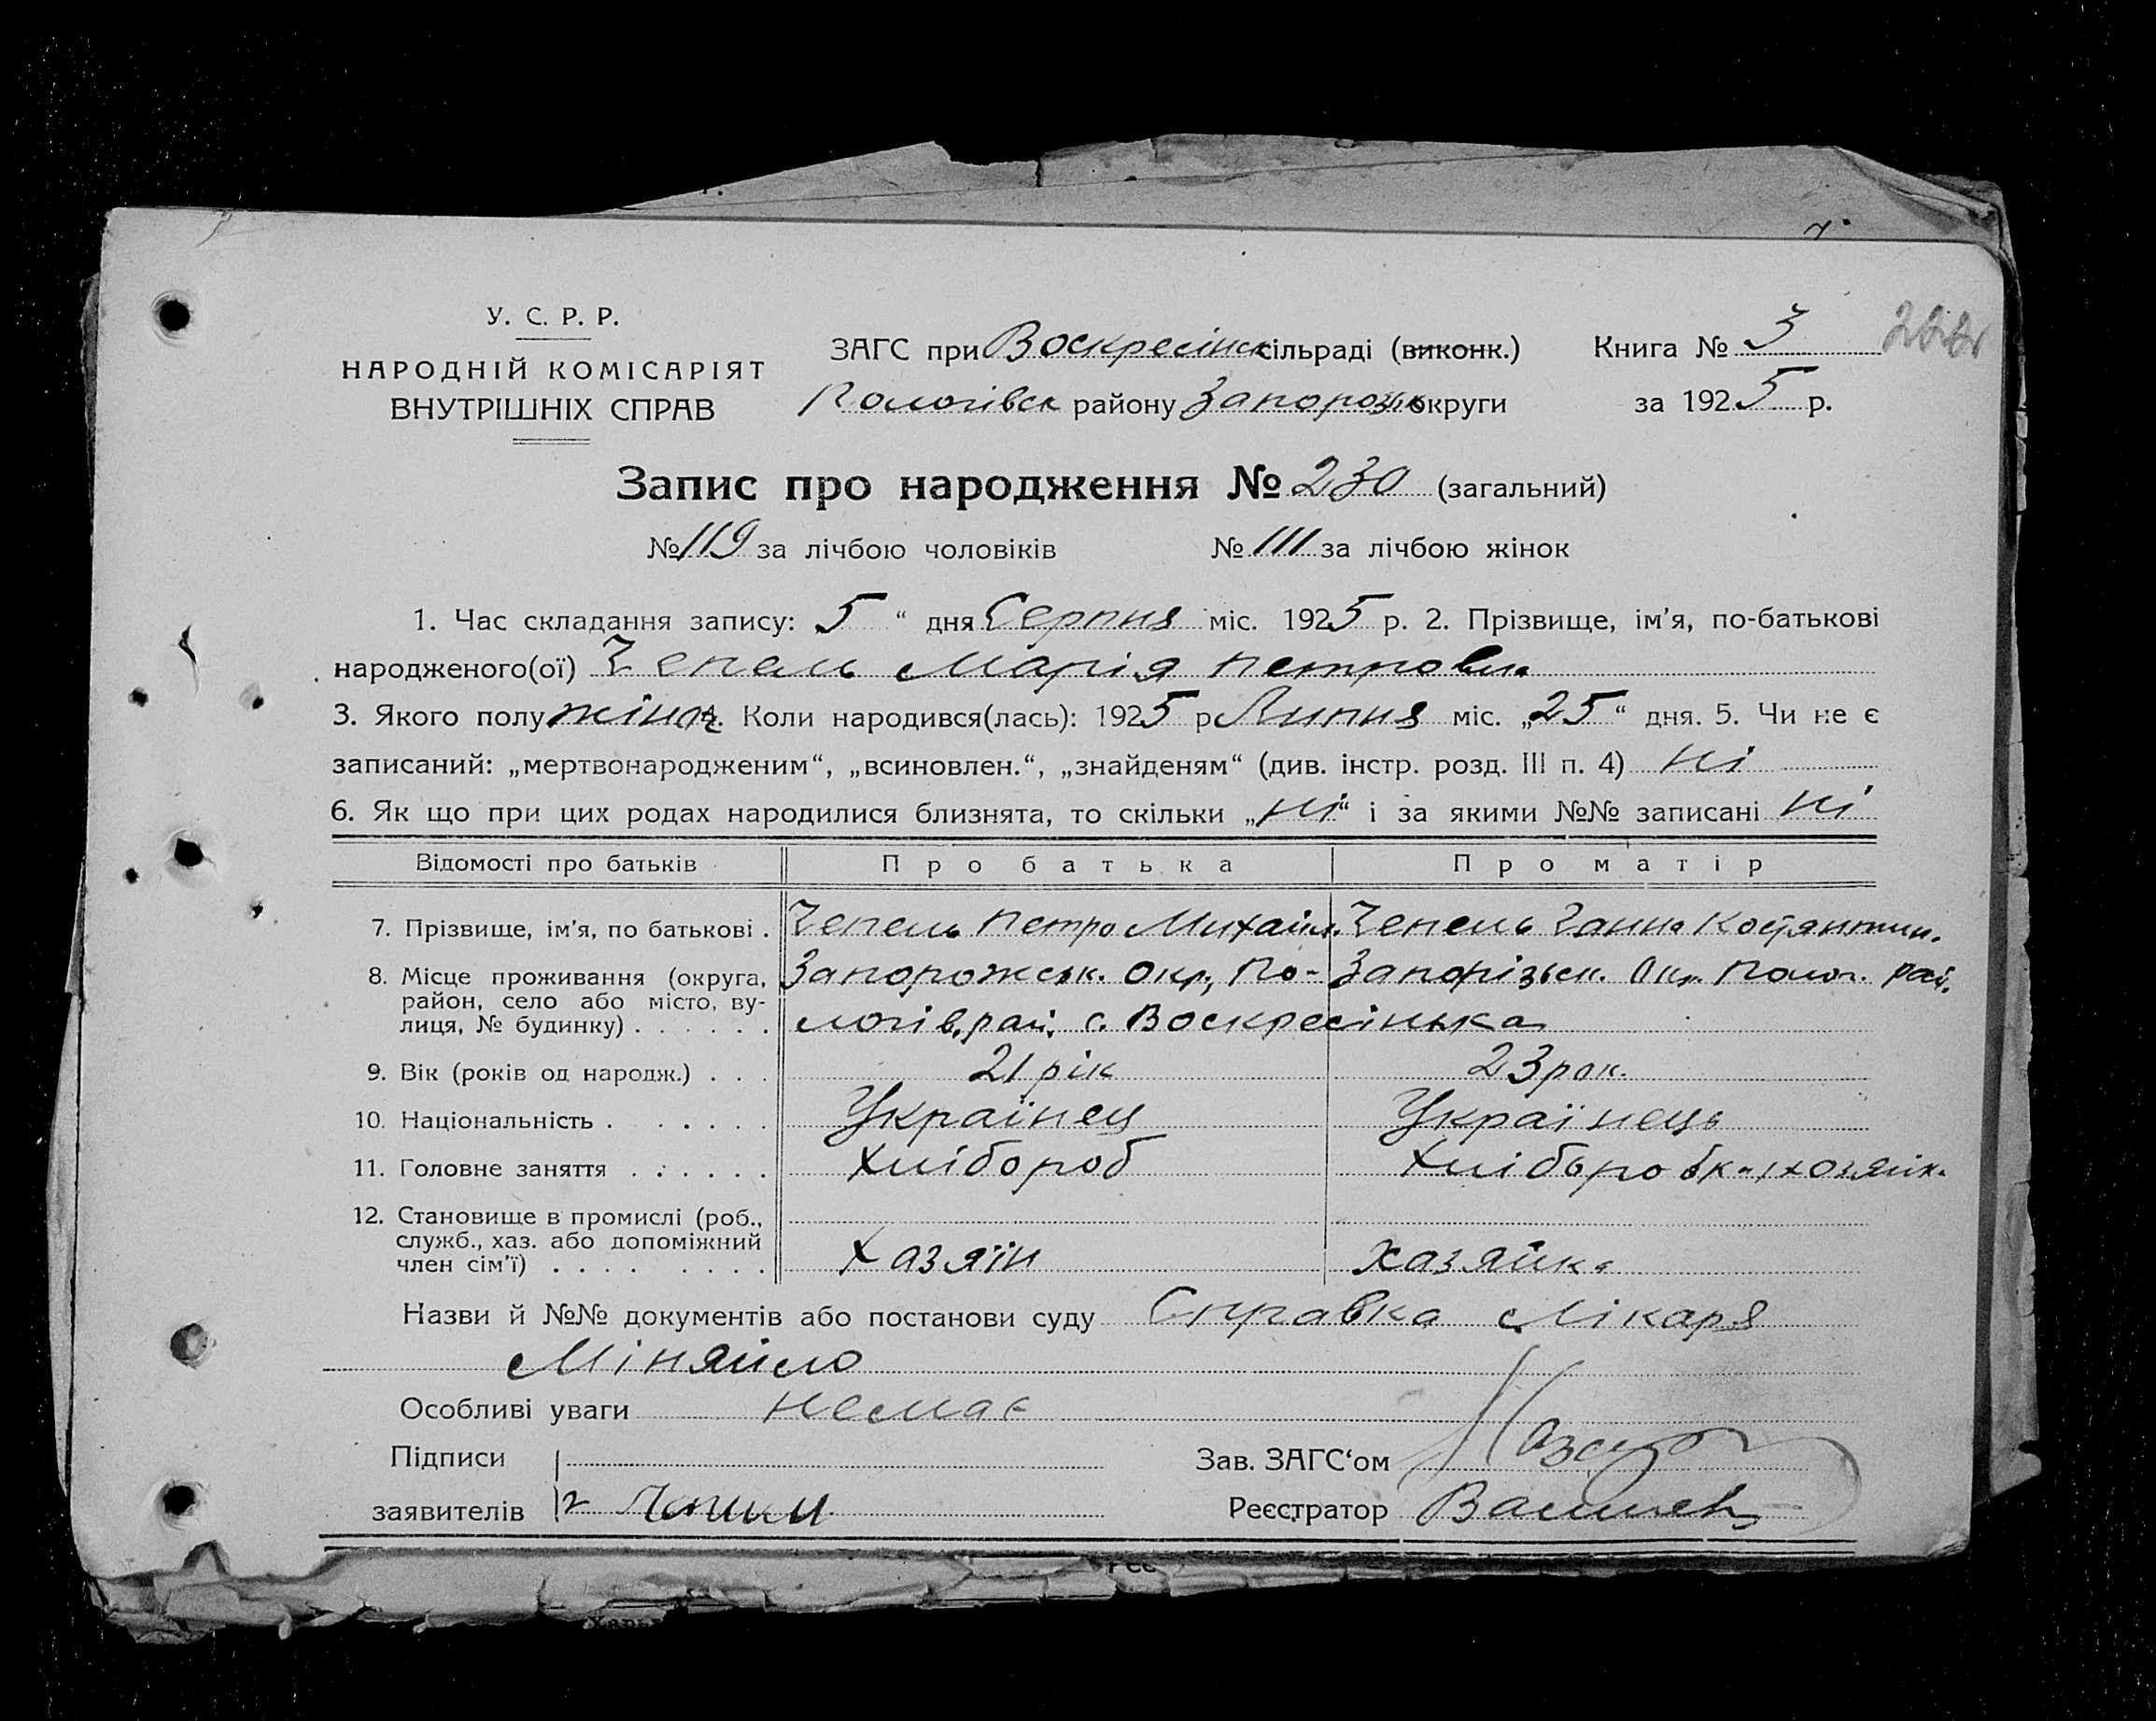 У. С. Р. Р.
НАРОДНІЙ КОМІСАРІЯТ
ВНУТРІШНІХ СПРАВ
ЗАГС при Воскресінск сільраді (виконк.)
Пологівск району Запорозьк округи
Книга № 3
за 1925 р.
Запис про народження № 230 (загальний)
№ 119 за лічбою чоловіків № 111 за лічбою жінок
1. Час складання запису: 5 “ дня Серпня міс. 1925 р. 2. Прізвище, ім’я, по-батькові
народженого(ої) Чепель Марія Петровна
3. Якого полу жіноч. Коли народився(лась): 1925 р Липня міс. „25“ дня. 5. Чи не є
записаний: „мертвонародженим“, „всиновлен.“, „знайденям“ (див. інстр. розд. III п. 4) ні
6. Як що при цих родах народилися близнята, то скільки „ні“ і за якими №№ записані ні
Відомості про батьків Про батька Про матір
7. Прізвище, ім’я, по батькові . Чепель Петро Михайл. Чепель Ганна Костянтин.
8. Місце проживання (округа, Запорожськ. Окр., По- Запорізьск. Окр. Полог. рай.
район, село або місто, ву-
лиця, № будинку) . . . . . . логів. рай. с. Воскресінька
9. Вік (років од народж.) . . . 21 рік 23 рок.
10. Національність . . . . . . Українец Українець
11. Головне заняття . . . . . . Хлібороб Хлібьробка, хозяйк.
12. Становище в промислі (роб.,
служб., хаз. або допоміжний
член сім’ї) . . . . . . . . Хазяїн хазяйка
Назви й №№ документів або постанови суду Справка Лікаря
Міняйло
Особливі уваги немає
Підписи
заявителів
Зав. ЗАГС‘ом
Реєстратор